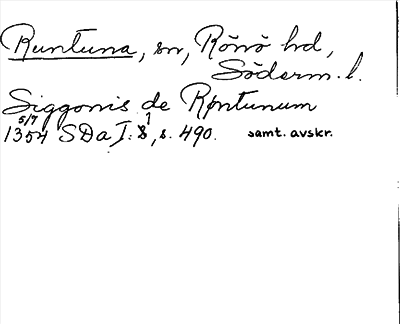 Runtuna, sn, Rönö hd,
Söderm. l.
Siggonis de Røntunum
5/7 1354 SDa I: 1, s. 490. samt. avskr.